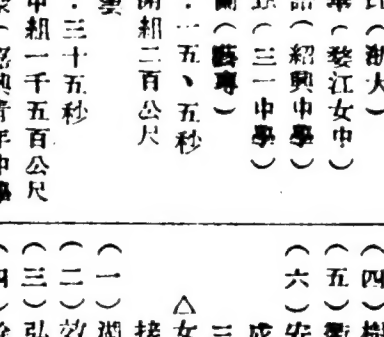 （湖大）
（婺江女中）
（紹興中學）
（三一中學）
（藝專）
．一五、五秒
組二百公尺
．三十五秒
組一千五百公尺
（紹興青年中學
（四）樹
（五）衢
（六）安
成
三
△女
接
（一）湖
（二）效
（三）弘
（四）